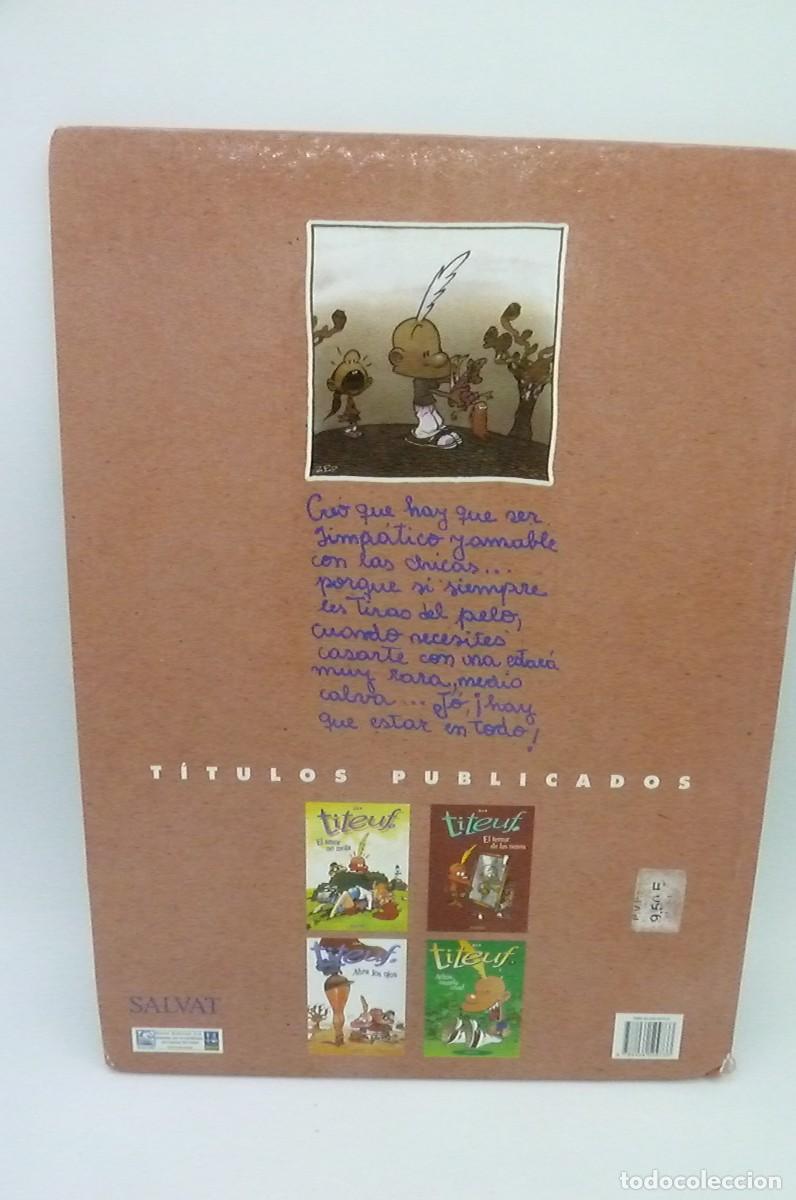 ZEP
Creo que hay que ser
simpático y amable
con las chicas...
porque si siempre
les tiras del pelo,
cuando necesites
casarte con una estará
muy rara, medio
calva... Jó, ¡hay
que estar en todo!
TÍTULOS PUBLICADOS
ZEP
titeuf.
El amor
no mola
titeuf.
El terror
de las nenas
titeuf.
Abre los ojos
titeuf.
P.V.P.
9,50 E
SALVAT
todocoleccion